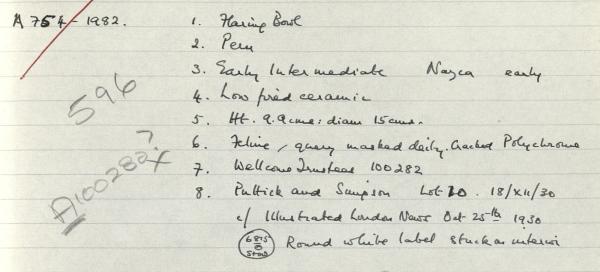 A 754-1982.
1. Flaring Bowl
2. Peru
3. Early Intermediate Nazca early
4. Low fired ceramic
5. Ht. 9.9cms: diam 15cms.
6. Feline, query masked deity. Cracked Polychrome
7. Wellcome Trustees 100282
8. Puttick and Simpson Lot 10. 18/XII/30
c/ Illustrated London News Oct 25th 1930
6875 Round white label stuck on interior
596
A100282 ?